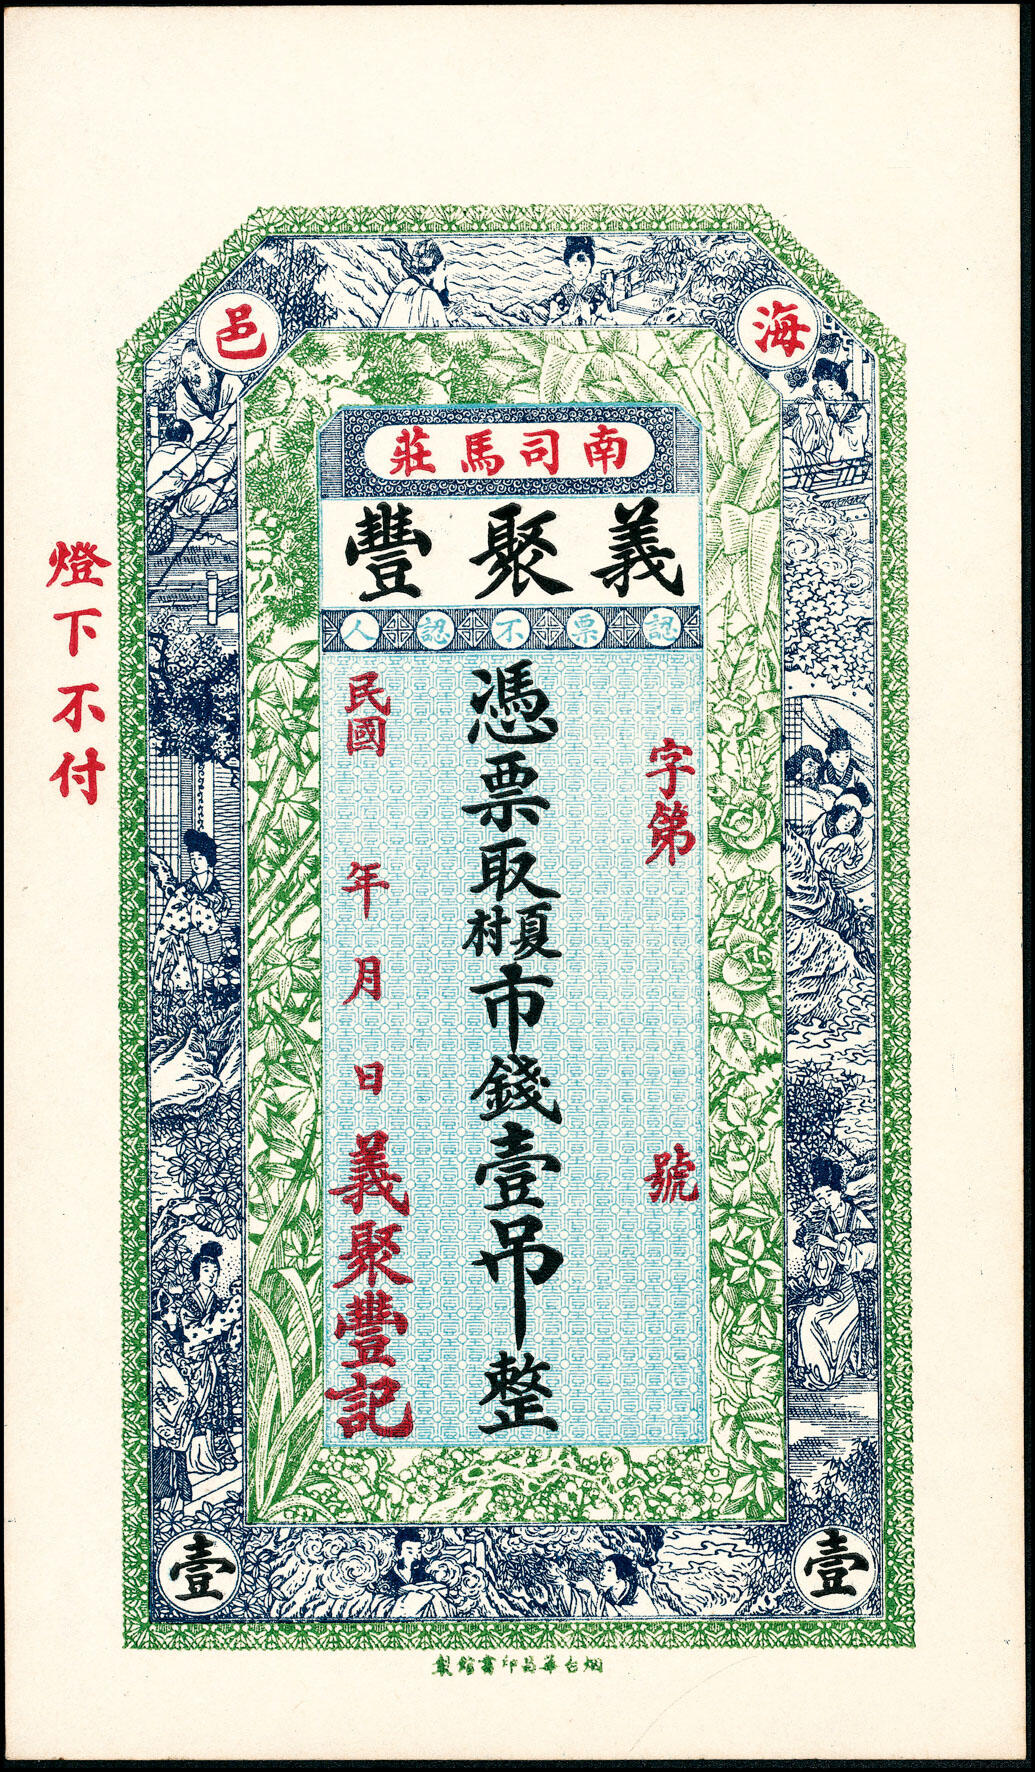 海邑
南司馬莊
義聚豐
認票不認人
字第 號
憑票取夏村市錢壹吊整
民國 年 月 日 義聚豐記
燈下不付
壹 壹
烟台華昌印書館製